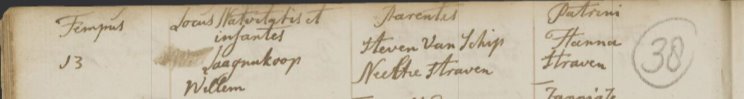 Tempus Locus Nativitatis et Parentes Patrini
infantes Steven Van Schip Hanna
13 Laagnukoop Neeltie Straven Straven 38
Willem